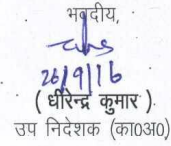 भवदीय,
26/9/16
( धीरेन्द्र कुमार )
उप निदेशक (का०अ०)